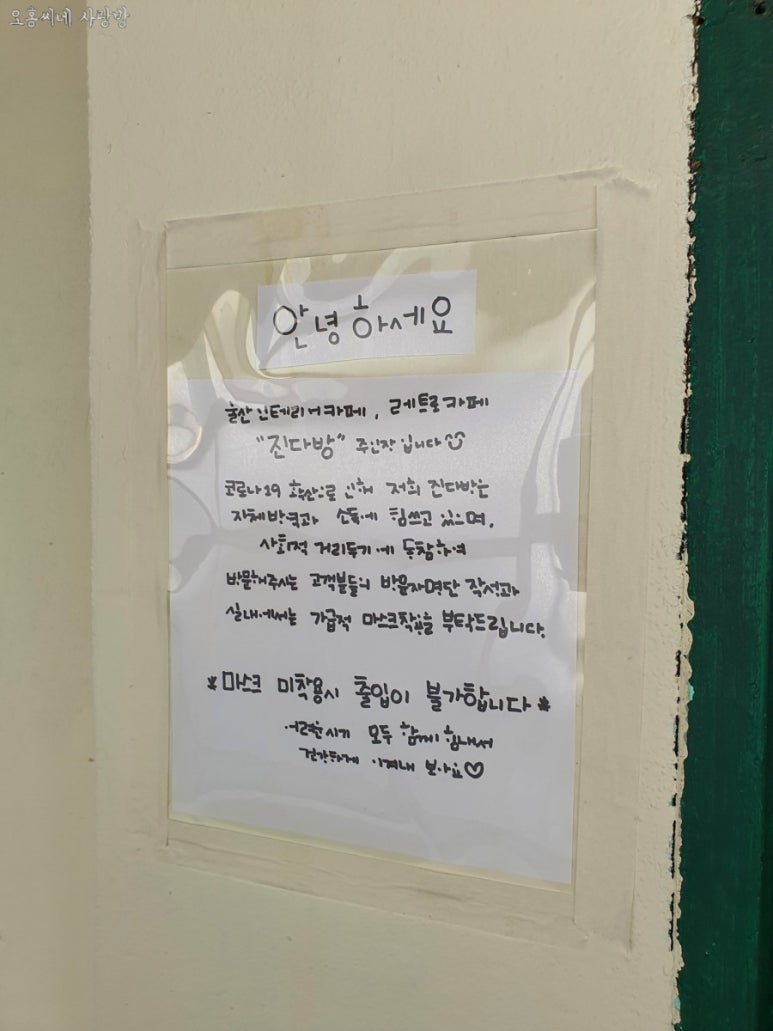 요홍씨네 사랑방
안녕하세요
울산인테리어카페, 레트로카페
"진다방" 주인장입니다
코로나19 확산으로 인해 저희 진다방은
자체방역과 소독에 힘쓰고 있으며,
사회적 거리두기에 동참하여
방문해주시는 고객분들의 방문자명단 작성과
실내에서는 가급적 마스크착용을 부탁드립니다.
*마스크 미착용시 출입이 불가합니다*
어려운시기 모두 함께 힘내서
건강하게 이겨내 보아요♡